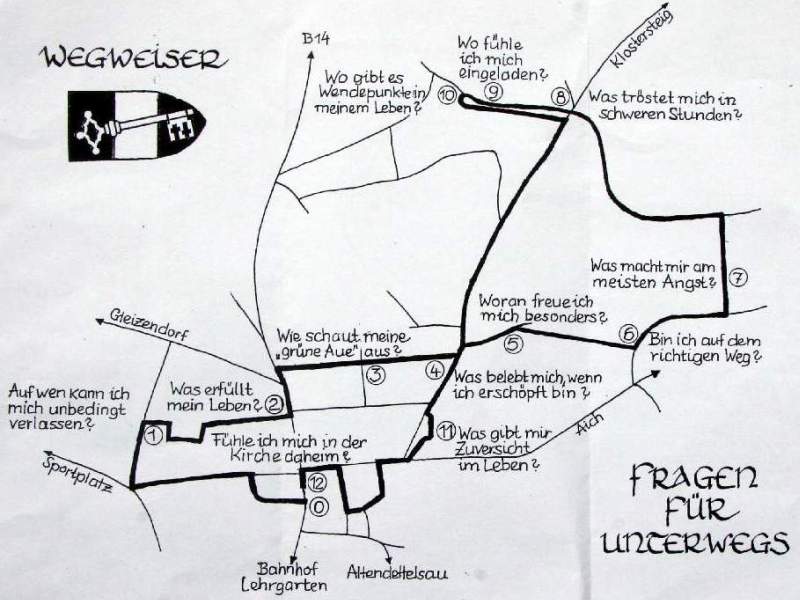 WEGWEISER
B14
Klostersteig
Wo fühle
ich mich
eingeladen?
Wo gibt es
Wendepunkte in
meinem Leben?
10
9
8
Was tröstet mich in
schweren Stunden?
Was macht mir am
meisten Angst?
7
Woran freue ich
mich besonders?
5
6
Bin ich auf dem
richtigen Weg?
Gleizendorf
Wie schaut meine
„grüne Aue" aus?
3
4
Was belebt mich, wenn
ich erschöpft bin?
Auf wen kann ich
mich unbedingt
verlassen?
Was erfüllt
mein Leben?
2
1
Fühle ich mich in der
Kirche daheim?
11
Was gibt mir
Zuversicht
im Leben?
Aich
Sportplatz
12
0
Bahnhof
Lehrgarten
Altendettelsau
FRAGEN
FÜR
UNTERWEGS